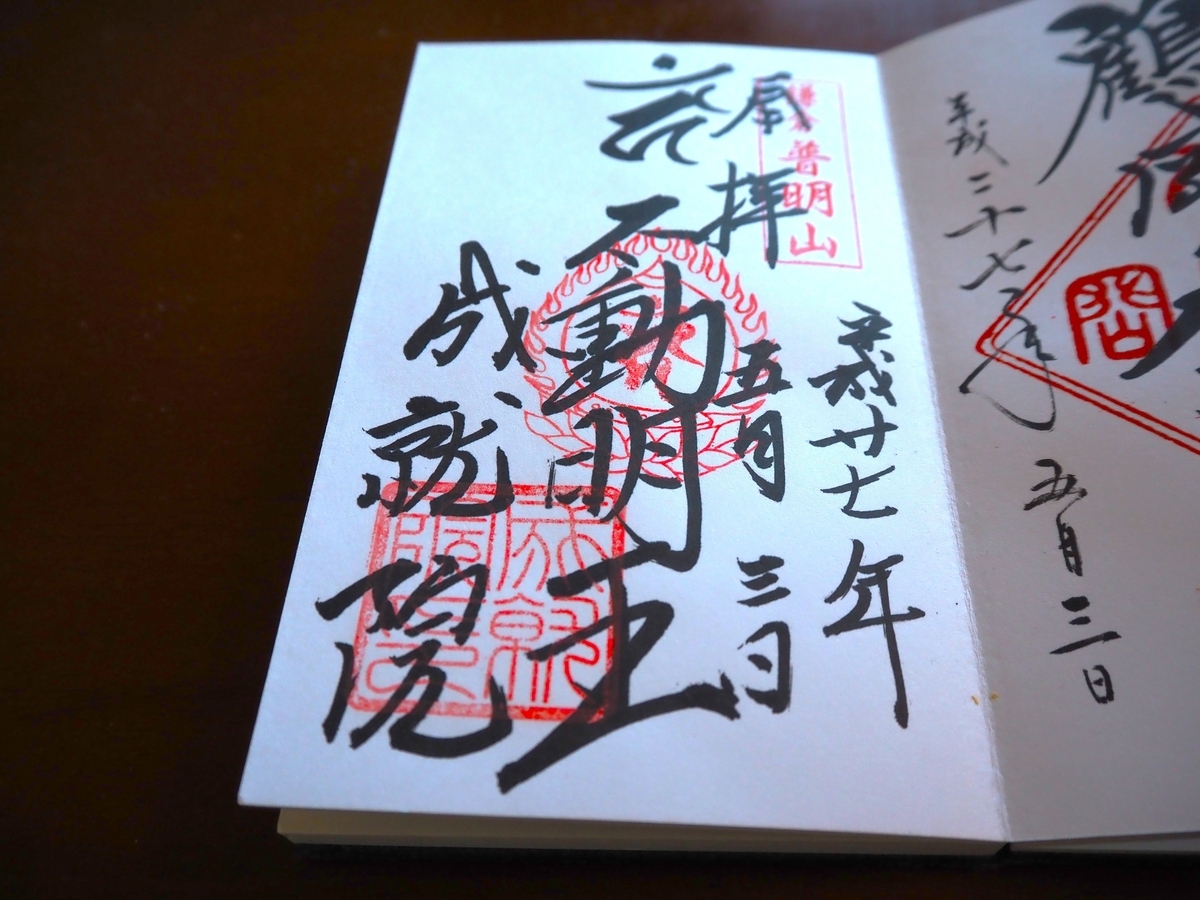 平成二十七年 五月三日
鎌倉 普明山
奉拝
平成廿七年
五月三日
不動明王
成就院
成就院印